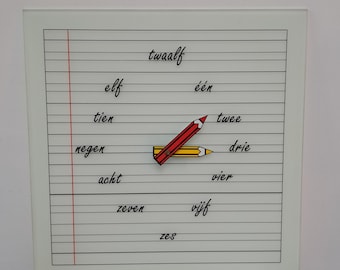 twaalf
elf één
tien twee
negen drie
acht vier
zeven vijf
zes